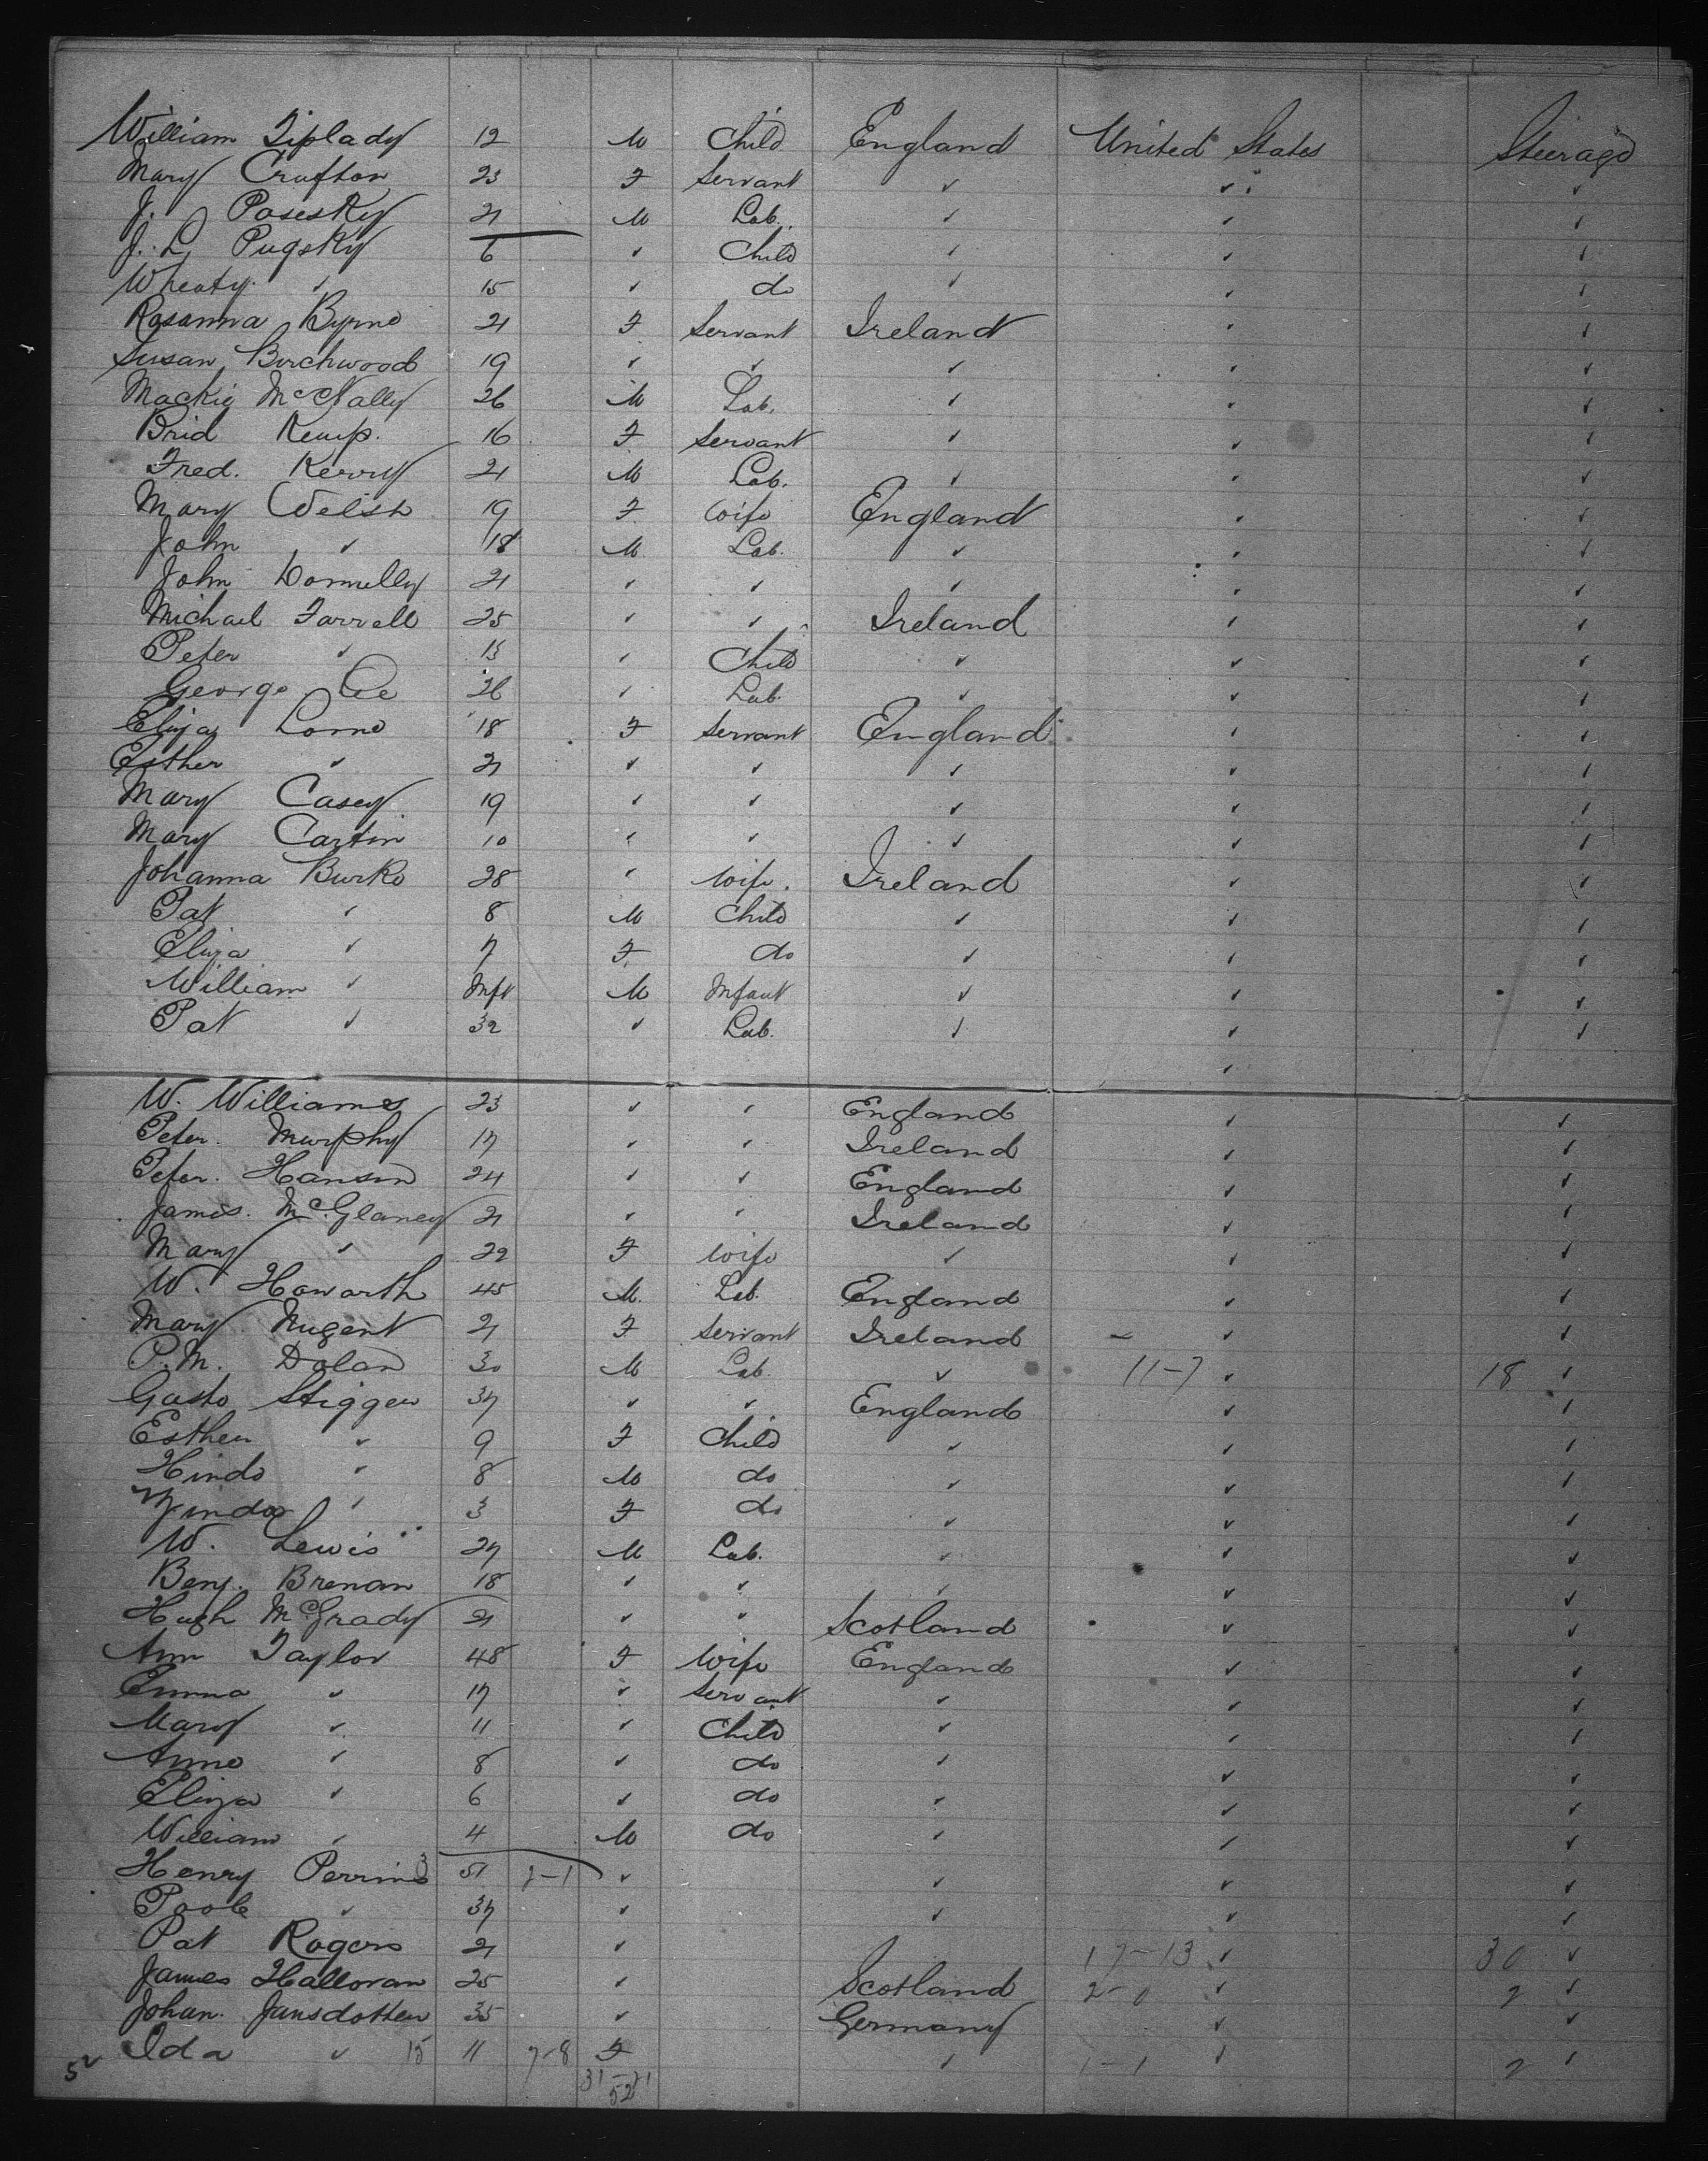 William Tiplady 12 M Child England United States Steerage
Mary Crufton 23 F Servant ✓ ✓ ✓
J. Posesky 21 M Lab. ✓ ✓ ✓
J. L. Pugsky 6 ✓ Child ✓ ✓ ✓
Wheaty ✓ 15 ✓ do ✓ ✓ ✓
Rosanna Byrne 21 F Servant Ireland ✓ ✓
Susan Birchwood 19 ✓ ✓ ✓ ✓ ✓
Mackie McNally 26 M Lab. ✓ ✓ ✓
Brid Kemp. 16 F Servant ✓ ✓ ✓
Fred. Kerry 21 M Lab. ✓ ✓ ✓
Mary Welsh 19 F Wife England ✓ ✓
John ✓ 18 M Lab. ✓ ✓ ✓
John Donnelly 21 ✓ ✓ ✓ ✓ ✓
Michael Farrell 25 ✓ ✓ Ireland ✓ ✓
Peter ✓ 13 ✓ Child ✓ ✓ ✓
George 26 ✓ Lab. ✓ ✓ ✓
Eliza Lorne 18 F Servant England ✓ ✓
Esther ✓ 21 ✓ ✓ ✓ ✓ ✓
Mary Casey 19 ✓ ✓ ✓ ✓ ✓
Mary Cartin 10 ✓ ✓ ✓ ✓ ✓
Johanna Burke 28 ✓ Wife. Ireland ✓ ✓
Pat ✓ 8 M Child ✓ ✓ ✓
Eliza ✓ 7 F do ✓ ✓ ✓
William ✓ Inft M Infant ✓ ✓ ✓
Pat ✓ 32 ✓ Lab. ✓ ✓ ✓
✓
W. Williams 23 ✓ ✓ England ✓ ✓
Peter. Murphy 17 ✓ ✓ Ireland ✓ ✓
Peter. Hanson 24 ✓ ✓ England ✓ ✓
James. McGlaney 21 ✓ ✓ Ireland ✓ ✓
Mary ✓ 22 F Wife ✓ ✓ ✓
W. Howarth 45 M. Lab. England ✓ ✓
Mary Nugent 21 F Servant Ireland – ✓ ✓
P. M. Dolan 30 M Lab. ✓ 11-7 ✓ 18 ✓
Gusto Stiggen 37 ✓ ✓ England ✓ ✓
Esther ✓ 9 F Child ✓ ✓ ✓
Hindo ✓ 8 M do ✓ ✓ ✓
✓ 3 F do ✓ ✓ ✓
W. Lewis 27 M Lab. ✓ ✓ ✓
Benj. Brenan 18 ✓ ✓ ✓ ✓ ✓
Hugh McGrady 21 ✓ ✓ Scotland ✓ ✓
Ann Taylor 48 F Wife England ✓ ✓
Emma ✓ 17 ✓ Servant ✓ ✓ ✓
Mary ✓ 11 ✓ Child ✓ ✓ ✓
Anne ✓ 8 ✓ do ✓ ✓ ✓
Eliza ✓ 6 ✓ do ✓ ✓ ✓
William ✓ 4 M do ✓ ✓ ✓
Henry Perrins 51 2-1 ✓ ✓ ✓ ✓
Poole ✓ 37 ✓ ✓ ✓ ✓
Pat Rogers 21 ✓ 17-13 ✓ 30 ✓
James Halloran 25 ✓ Scotland 2-0 ✓ 2 ✓
Johan. Jansdotten 35 ✓ Germany ✓ ✓
Ida ✓ 15 11 7-8 F ✓ 1-1 ✓ 2 ✓
52 31-21
52